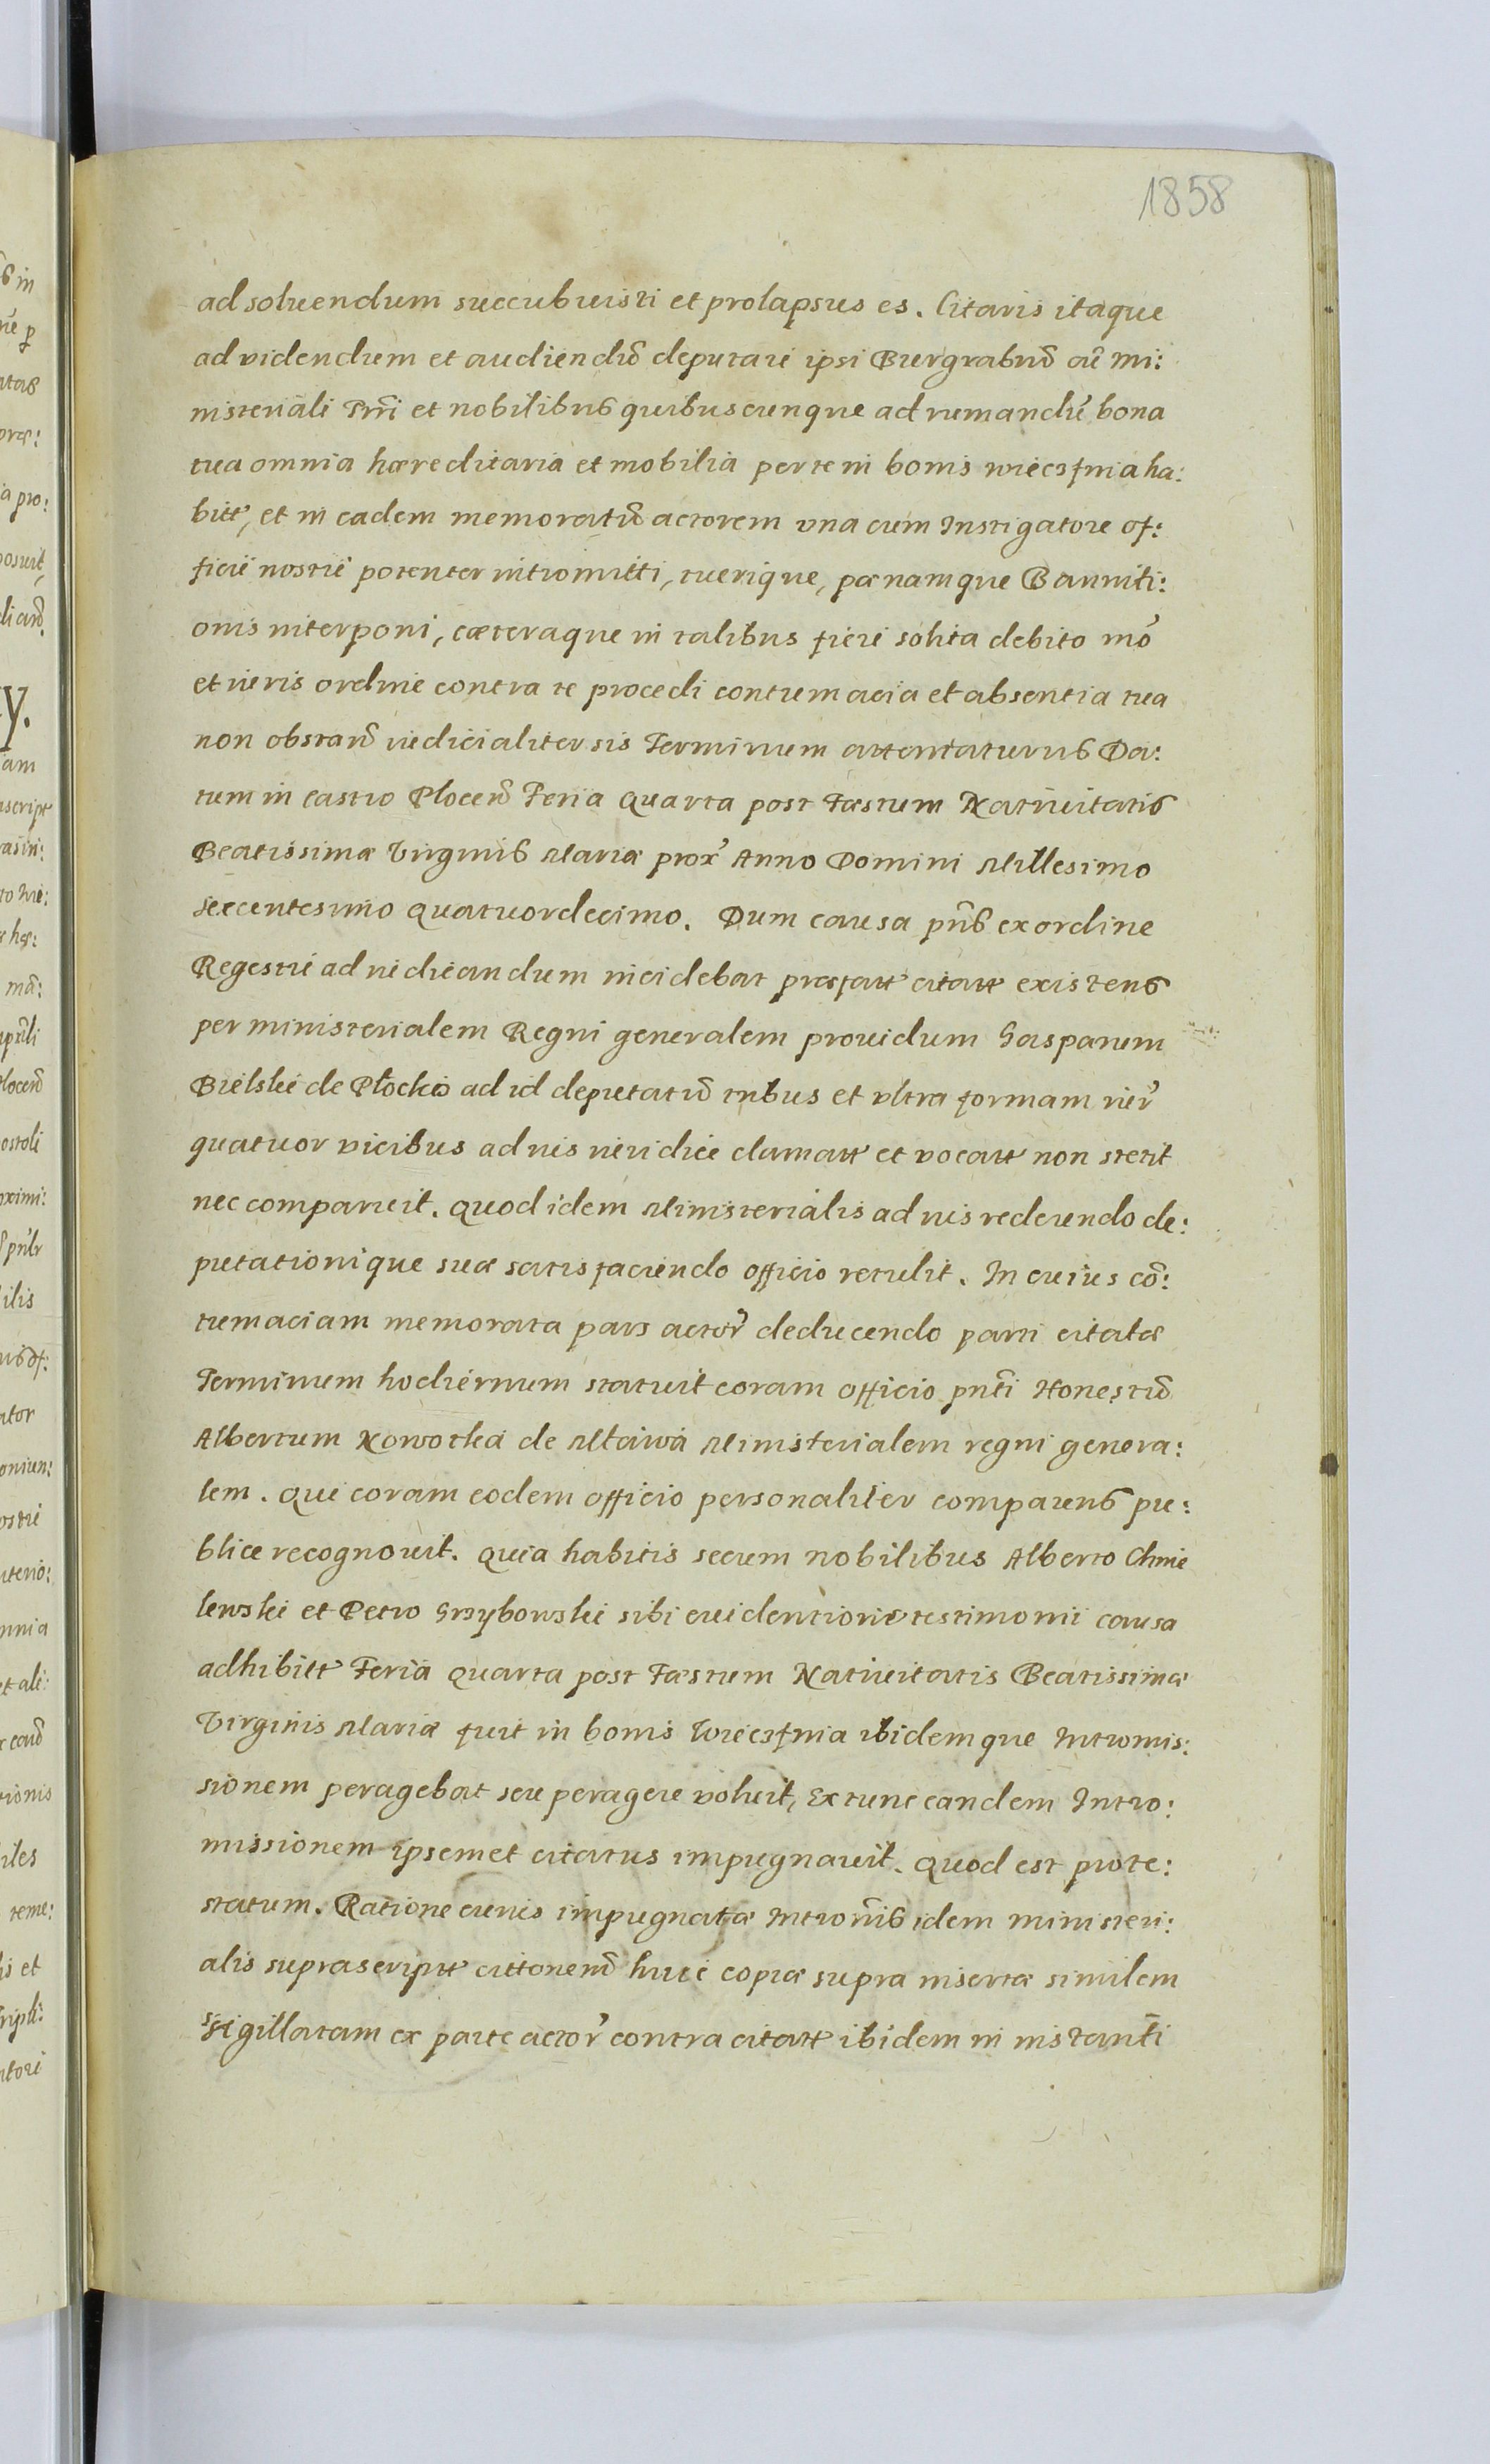 1858
ad soluendum succubuisti et prolapsus es. Citaris itaque
ad videndum et audiendū deputari ipsi Burgrabiū aut mi:
nisteriali Trri et nobilibus quibuscunque ad rumandū bona
tua omnia hæreditaria et mobilia per te in bonis Wieczfnia ha:
bitt, et in eadem memoratū actorem vna cum Instigatore of:
ficii nostri potenter intromitti, tuerique, pœnamque Banniti:
onis interponi, cæteraque in talibus fieri solita debito mō
et iuris ordine contra te procedi contumacia et absentia tua
non obstan iudicialiter sis Terminum attentaturus Da:
tum in Castro Plocen Feria Quarta post Fæstum Natiuitatis
Beatissimæ Virginis Mariæ prox Anno Domini Millesimo
Sexcentesimo Quatuordecimo. Dum causa pn̄s ex ordine
Regestri ad iudicandum incidebat præfatt citatt existens
per ministerialem Regni generalem prouidum Gasparum
Bielski de Płocko ad id deputatū tribus et vltra formam iur
quatuor vicibus ad ius iuridice clamatt et vocatt non stetit
nec comparuit. Quod idem Ministerialis ad ius redeundo de:
putationique suæ satisfaciendo officio retulit. In cuius cō:
tumaciam memorata pars actor deducendo parti citatæ
Terminum hodiernum statuit coram officio pn̄ti Honestū
Albertum Nowotka de Mława Ministerialem regni genera:
lem. Qui coram eodem officio personaliter comparens pu:
blice recognouit. Quia habitis secum nobilibus Alberto Chmie
lewski et Petro Grzybowski sibi euidentioris testimonii causa
adhibitt Feria Quarta post Fæstum Natiuitatis Beatissimæ
Virginis Mariæ fuit in bonis Wieczfnia ibidemque Intromis:
sionem peragebat seu peragere voluit, Extunc eandem Intro:
missionem ipsemet citatus impugnauit. Quod est prote:
statum. Ratione cuius impugnatæ Intromis idem ministeri:
alis suprascriptt cittonem huic copiæ supra insertæ similem
Sigillatam ex parte actor contra citatt ibidem in instanti